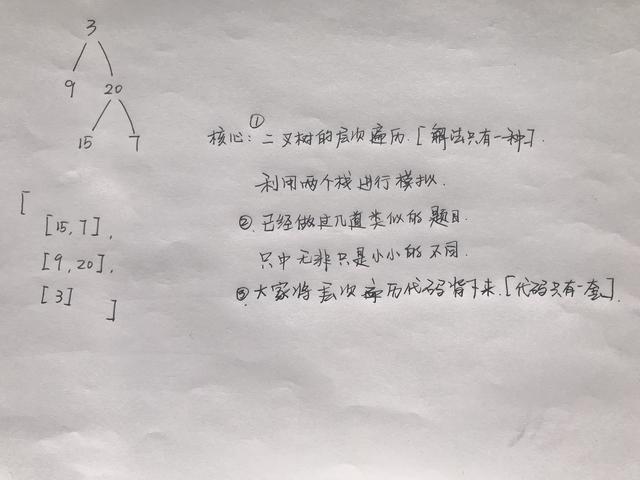 3
9 20
15 7
核心: ① 二叉树的层次遍历. [解法只有一种].
利用两个栈进行模拟.
② 已经做过几道类似的题目.
只中无非只是小小的不同.
③ 大家将层次遍历代码背下来. [代码只有一套].
[
[15,7],
[9,20],
[3]
]